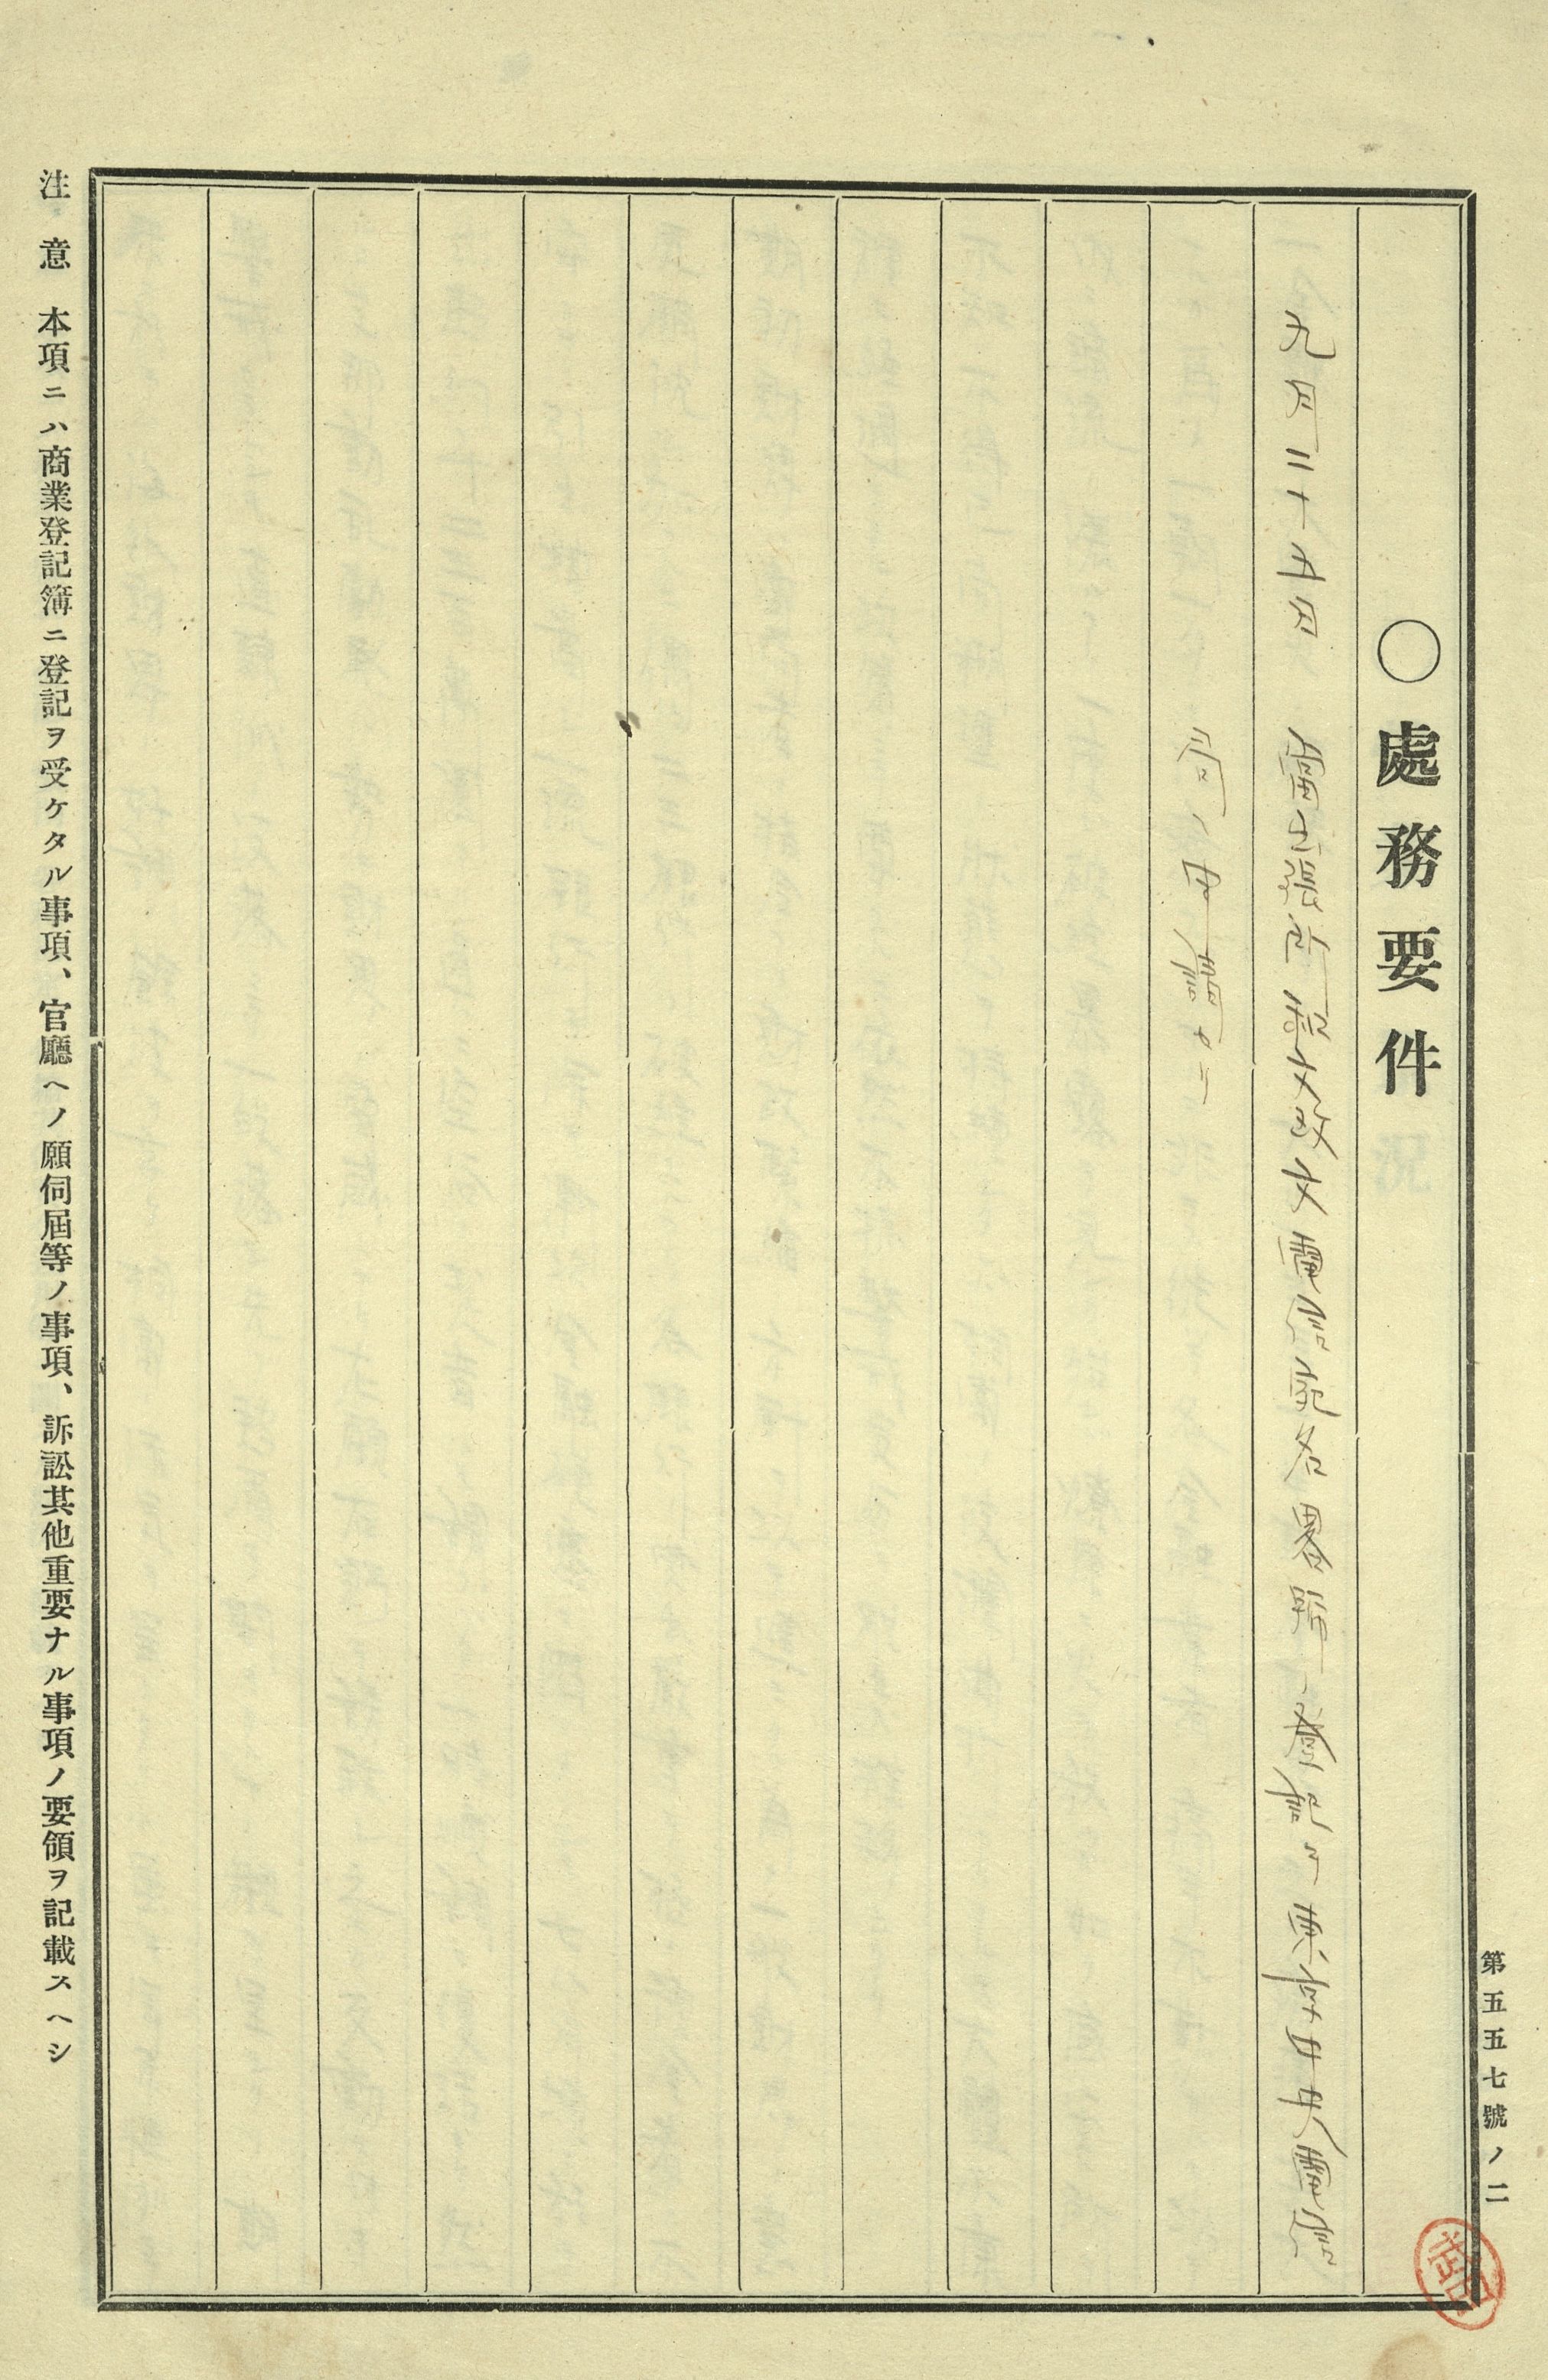 第五五七號ノ二
〇處務要件
九月二十五日 當出張所和文欧文電信宛名畧號ノ登記ヲ東京中央電信
局ヘ申請セリ
注意 本項ニハ商業登記簿ニ登記ヲ受ケタル事項、官廳ヘノ願伺屆等ノ事項、訴訟其他重要ナル事項ノ要領ヲ記載スヘシ